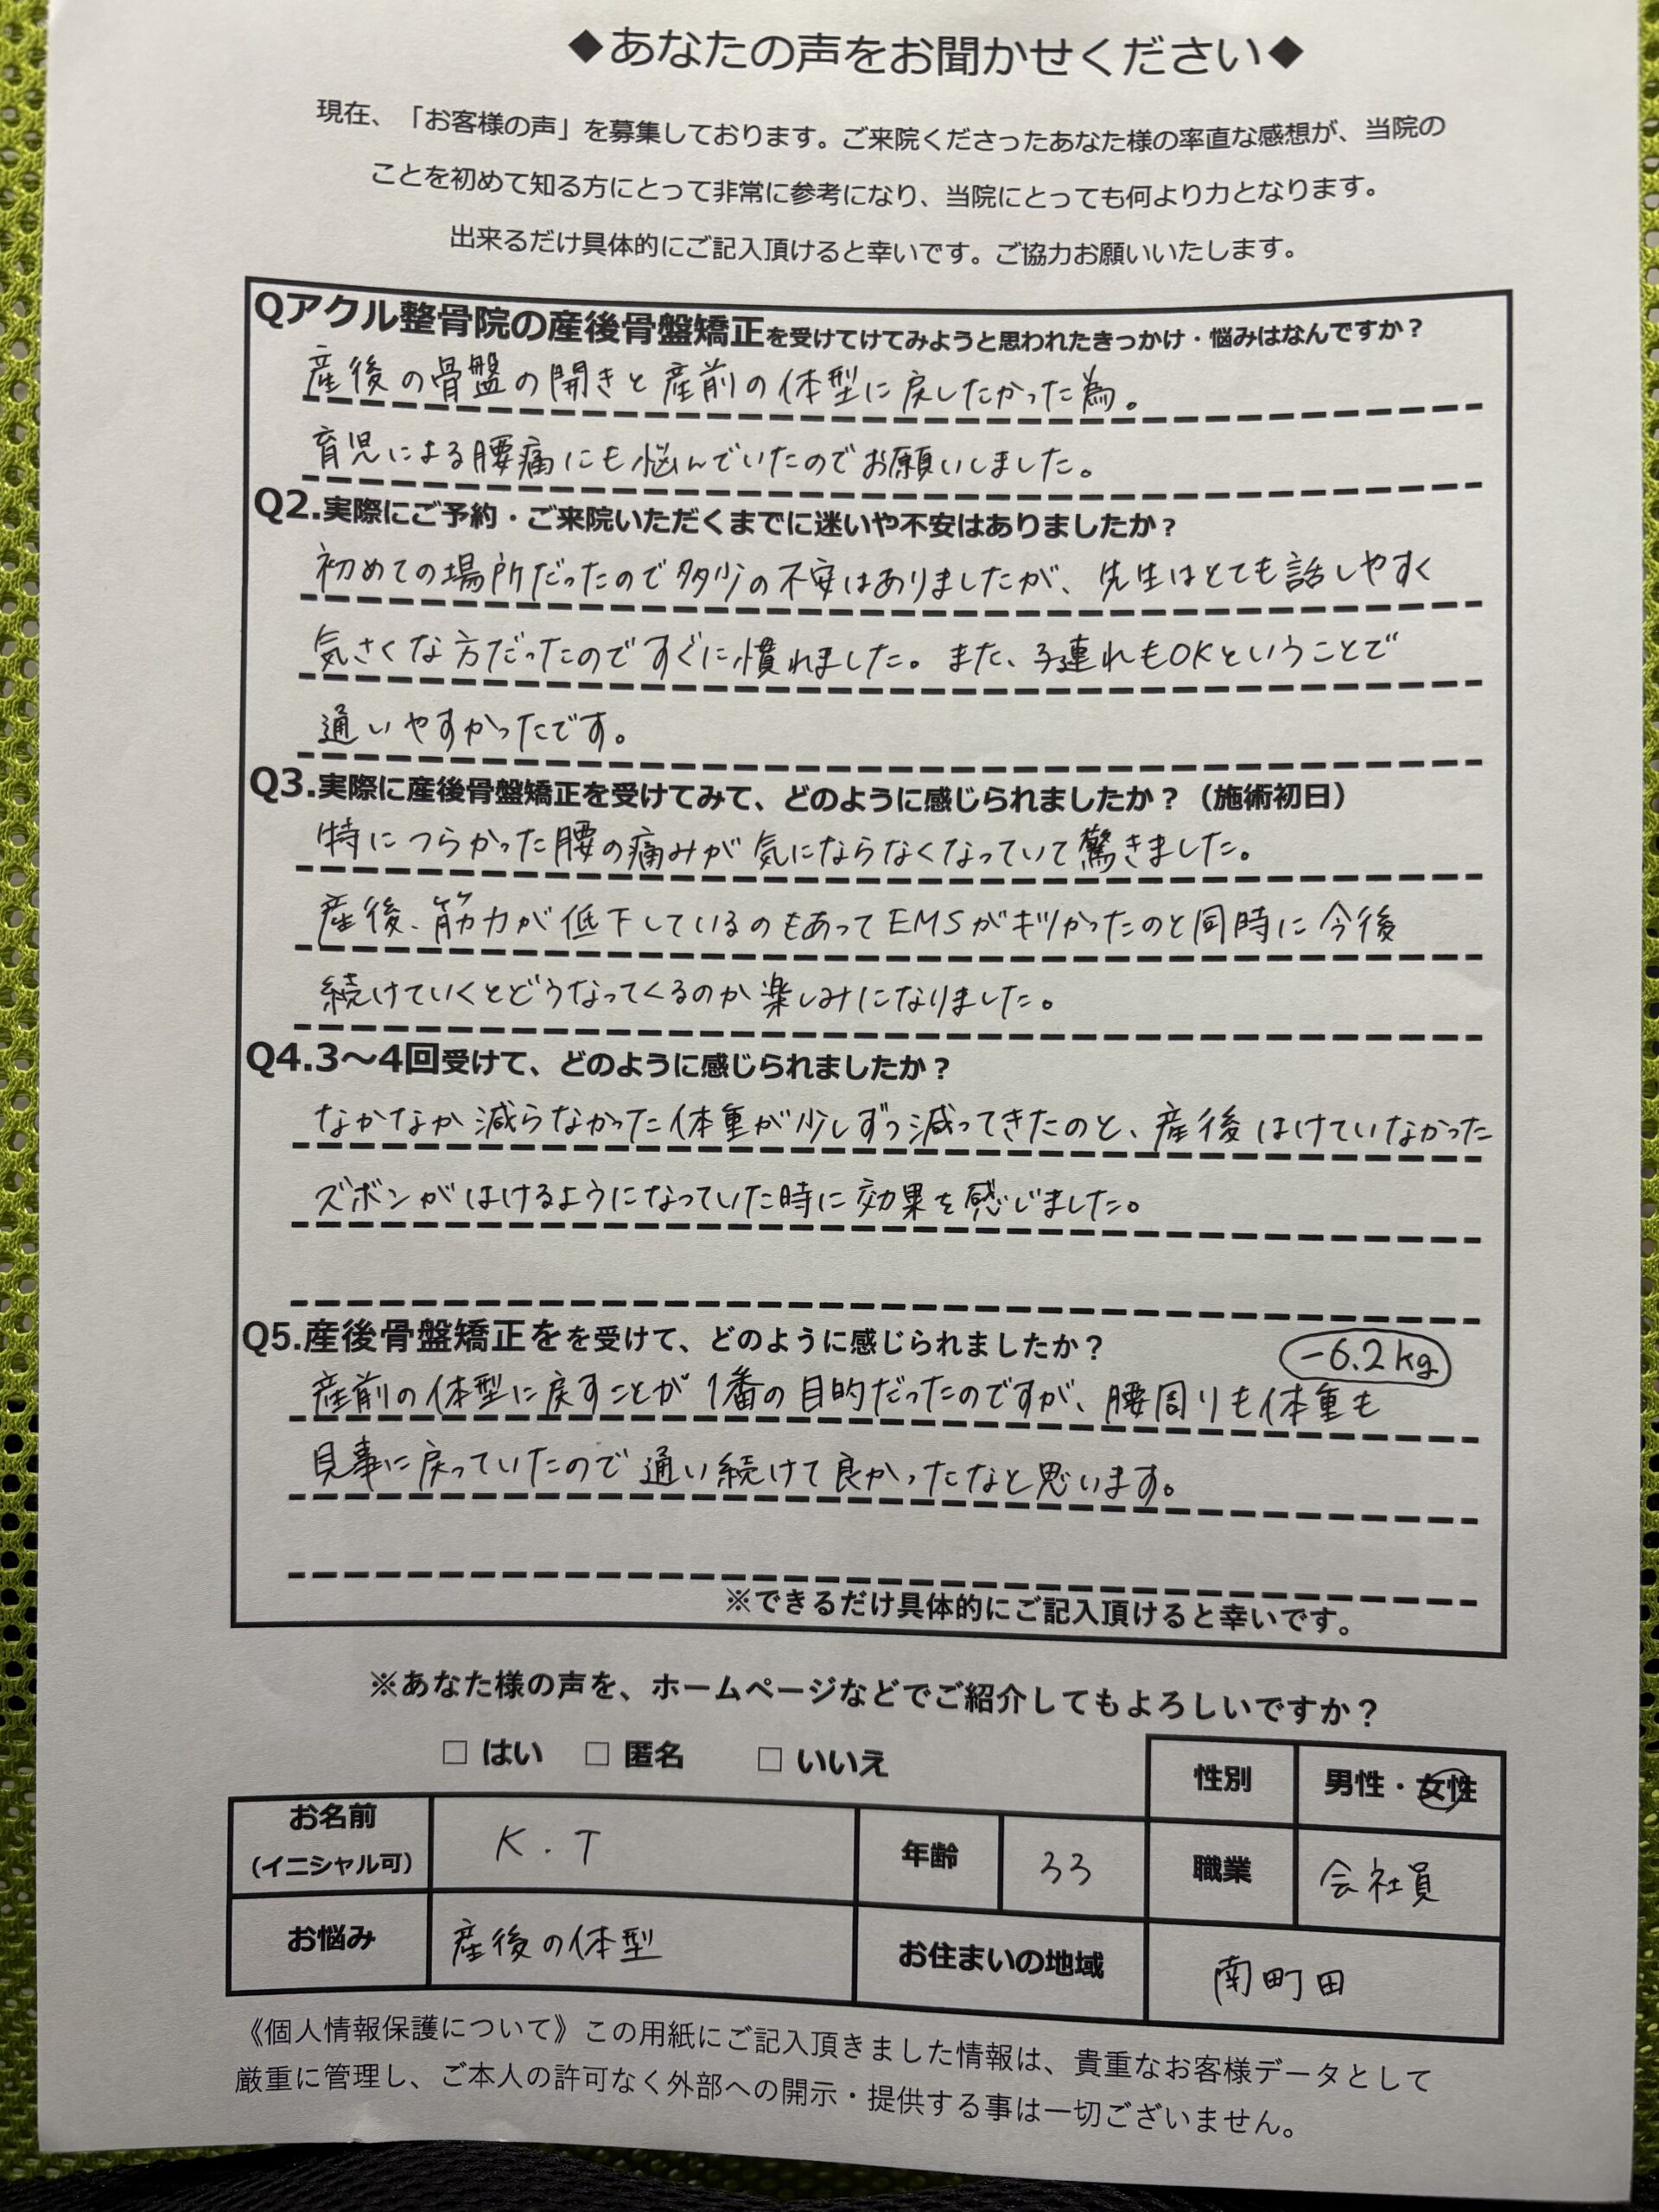 ◆あなたの声をお聞かせください◆
現在、「お客様の声」を募集しております。ご来院くださったあなた様の率直な感想が、当院の
ことを初めて知る方にとって非常に参考になり、当院にとっても何より力となります。
出来るだけ具体的にご記入頂けると幸いです。ご協力お願いいたします。
Qアクル整骨院の産後骨盤矯正を受けてけてみようと思われたきっかけ・悩みはなんですか？
産後の骨盤の開きと産前の体型に戻したかった為。
育児による腰痛にも悩んでいたのでお願いしました。
Q2.実際にご予約・ご来院いただくまでに迷いや不安はありましたか？
初めての場所だったので多少の不安はありましたが、先生はとても話しやすく
気さくな方だったのですぐに慣れました。また、子連れもOKということで
通いやすかったです。
Q3.実際に産後骨盤矯正を受けてみて、どのように感じられましたか？（施術初日）
特につらかった腰の痛みが気にならなくなっていて驚きました。
産後、筋力が低下しているのもあってEMSがキツかったのと同時に今後
続けていくとどうなってくるのか楽しみになりました。
Q4.3～4回受けて、どのように感じられましたか？
なかなか減らなかった体重が少しずつ減ってきたのと、産後はけていなかった
ズボンがはけるようになっていた時に効果を感じました。
Q5.産後骨盤矯正をを受けて、どのように感じられましたか？
-6.2kg
産前の体型に戻すことが1番の目的だったのですが、腰周りも体重も
見事に戻っていたので通い続けて良かったなと思います。
※できるだけ具体的にご記入頂けると幸いです。
※あなた様の声を、ホームページなどでご紹介してもよろしいですか？
□ はい □ 匿名 □ いいえ
性別 男性・女性
お名前
（イニシャル可） K.T 年齢 33 職業 会社員
お悩み 産後の体型 お住まいの地域 南町田
《個人情報保護について》この用紙にご記入頂きました情報は、貴重なお客様データとして
厳重に管理し、ご本人の許可なく外部への開示・提供する事は一切ございません。